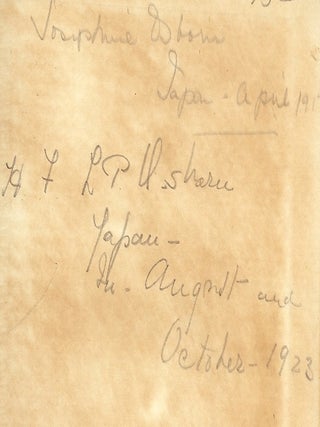 Josephine Osborn
Japan - April 191
H F L P Osborn
Japan -
In - August and
October - 1923